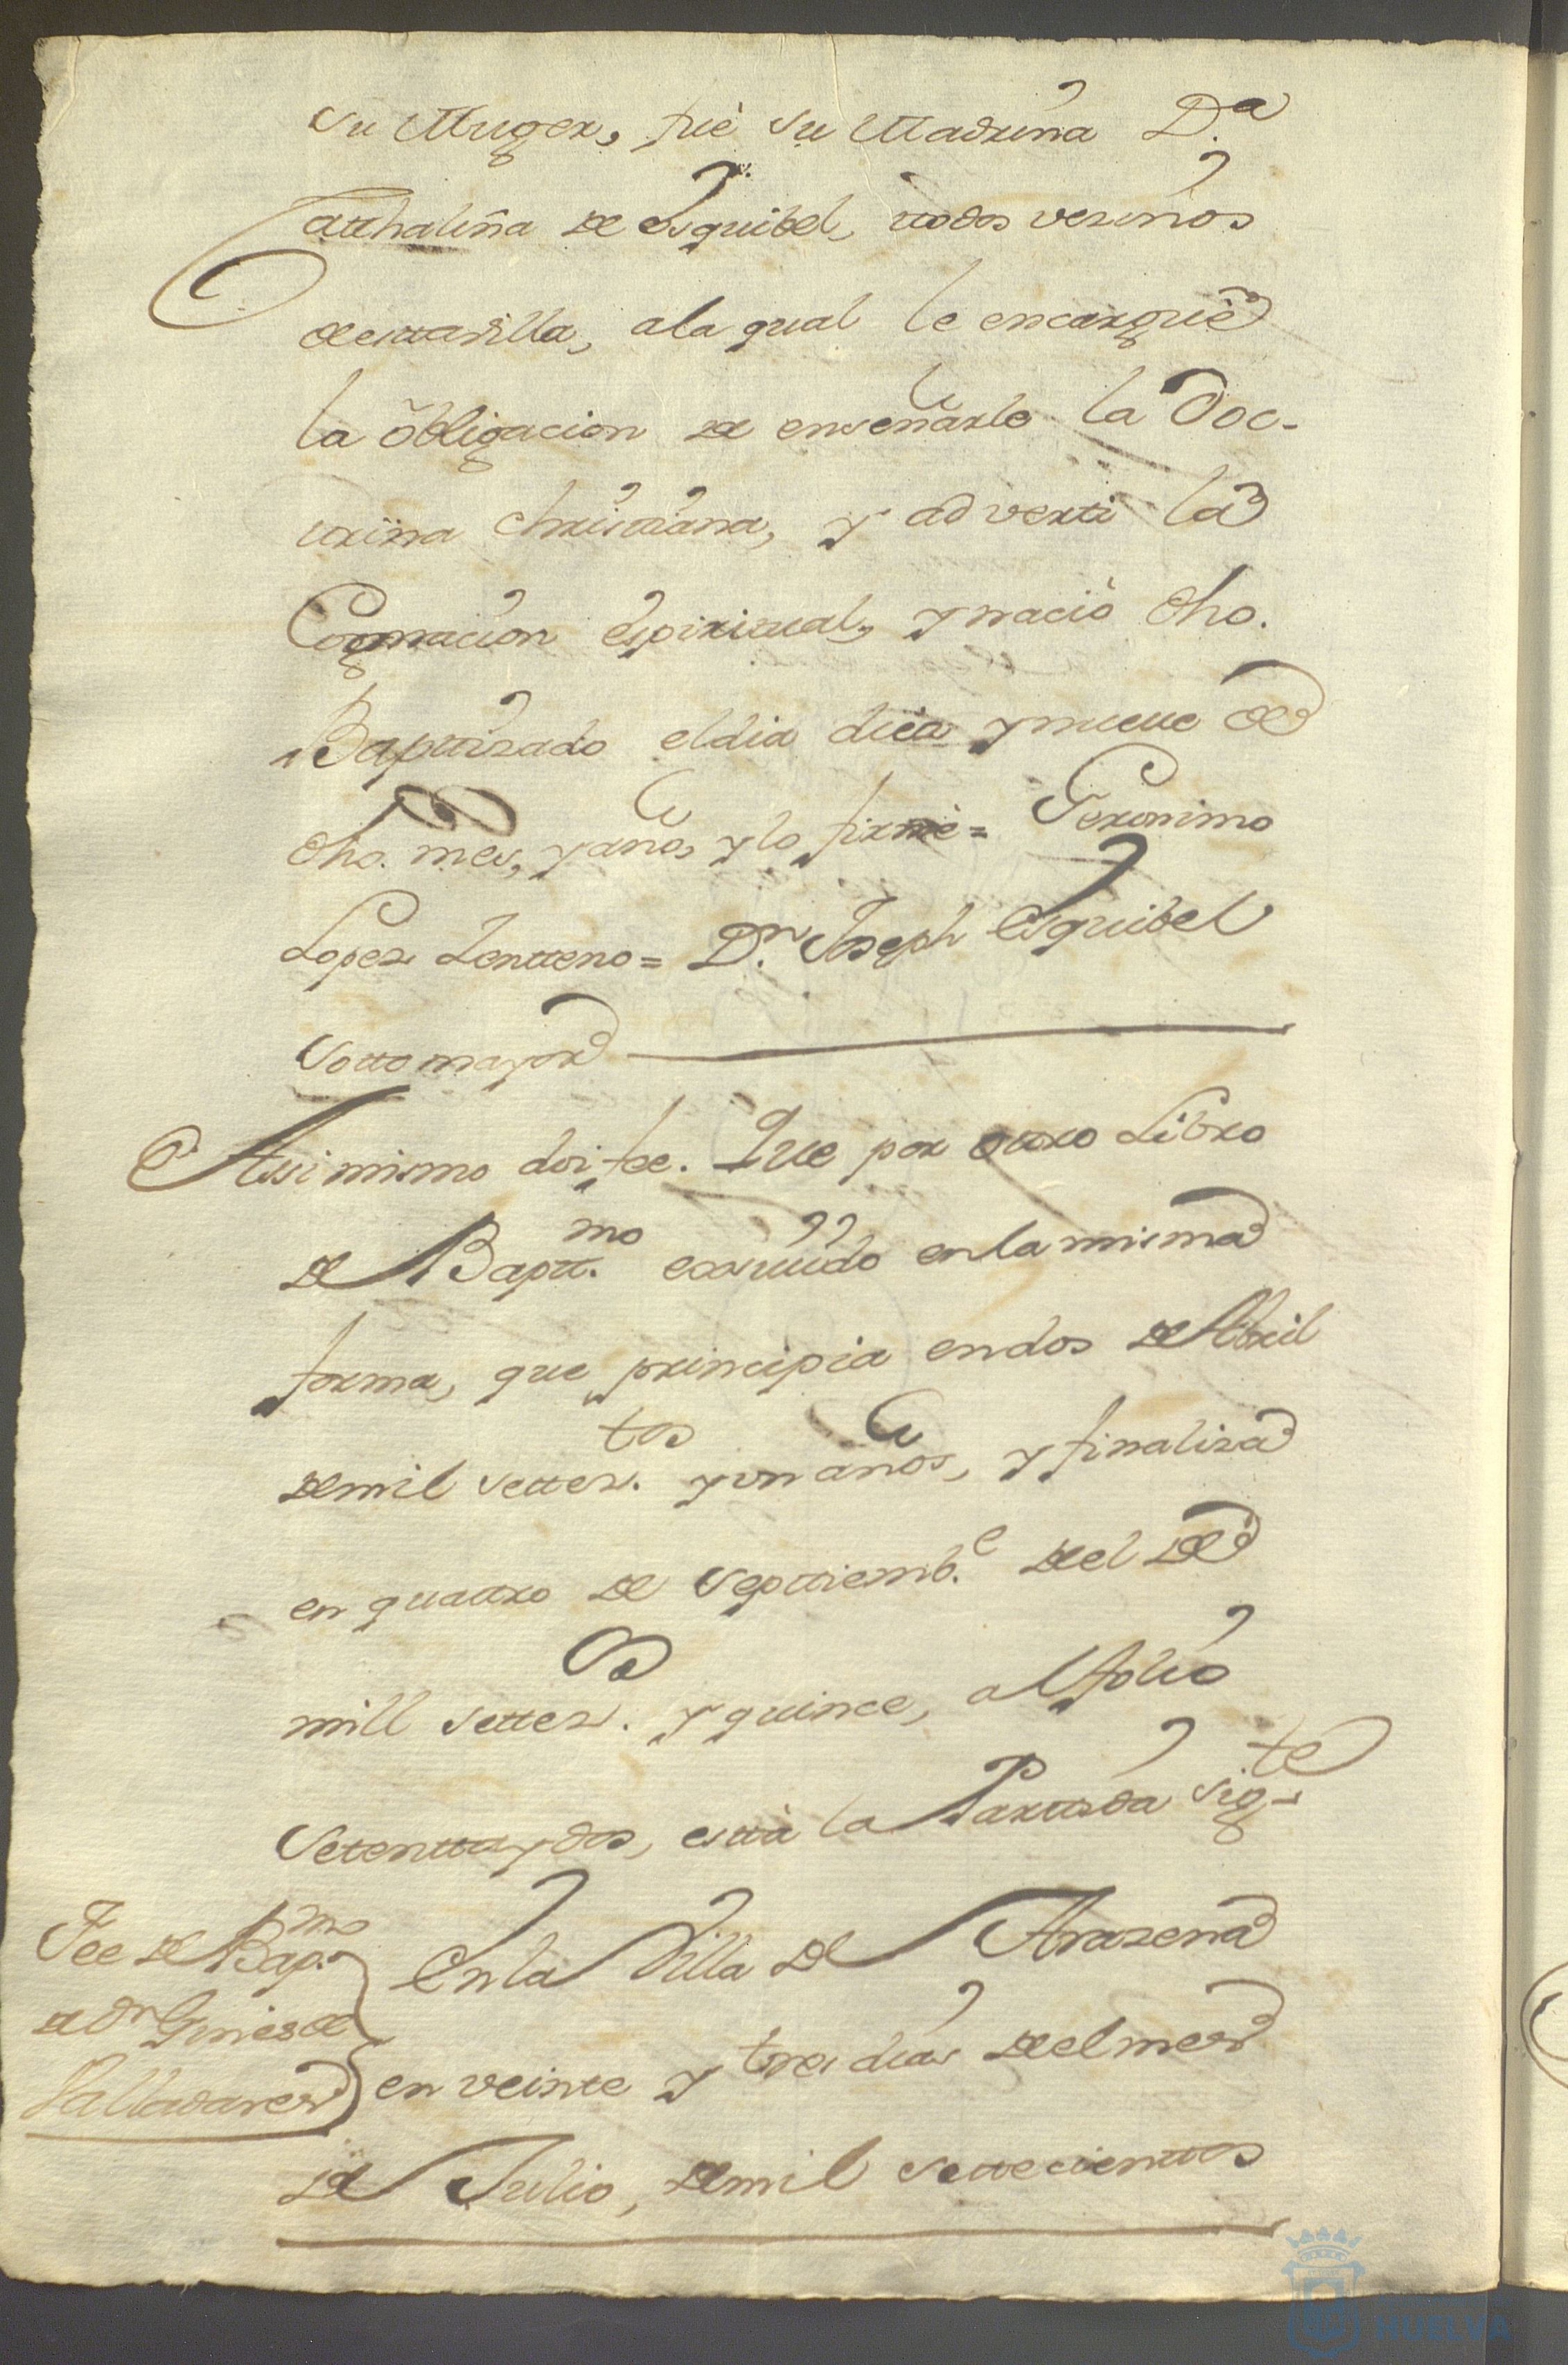 su Muger, fuè su Madrina D.ª
Catthalina de Esquibel, ttodos vezinos
de estta villa, a la qual le encarguè
la obligacion de enseñarle la Doc-
ttrina christtiana, y adverti la
Cognacion espiritual, y naciò dho.
Baptizado el dia diez y nueve de
dho. mes, y año, y lo firmè = Geronimo
Lopez Zentteno = D.n Joseph Esquibel
Sotto mayor
Assi mismo doi fee. Que por ottro Libro
de Baptt.mo escriuido en la misma
forma, que principia en dos de Abril
de mil settez.tos y vn años, y finaliza
en quattro de Septtiemb.e de el de
mill settez.os y quince, al folio
Setentta y dos, estta la Parttida sig.te
Fee de Bap.mo
a dn Gines de
Valladares
En la Villa de Arazena
en veinte y tres dias de el mes
de Julio, de mil settecienttos
HUELVA